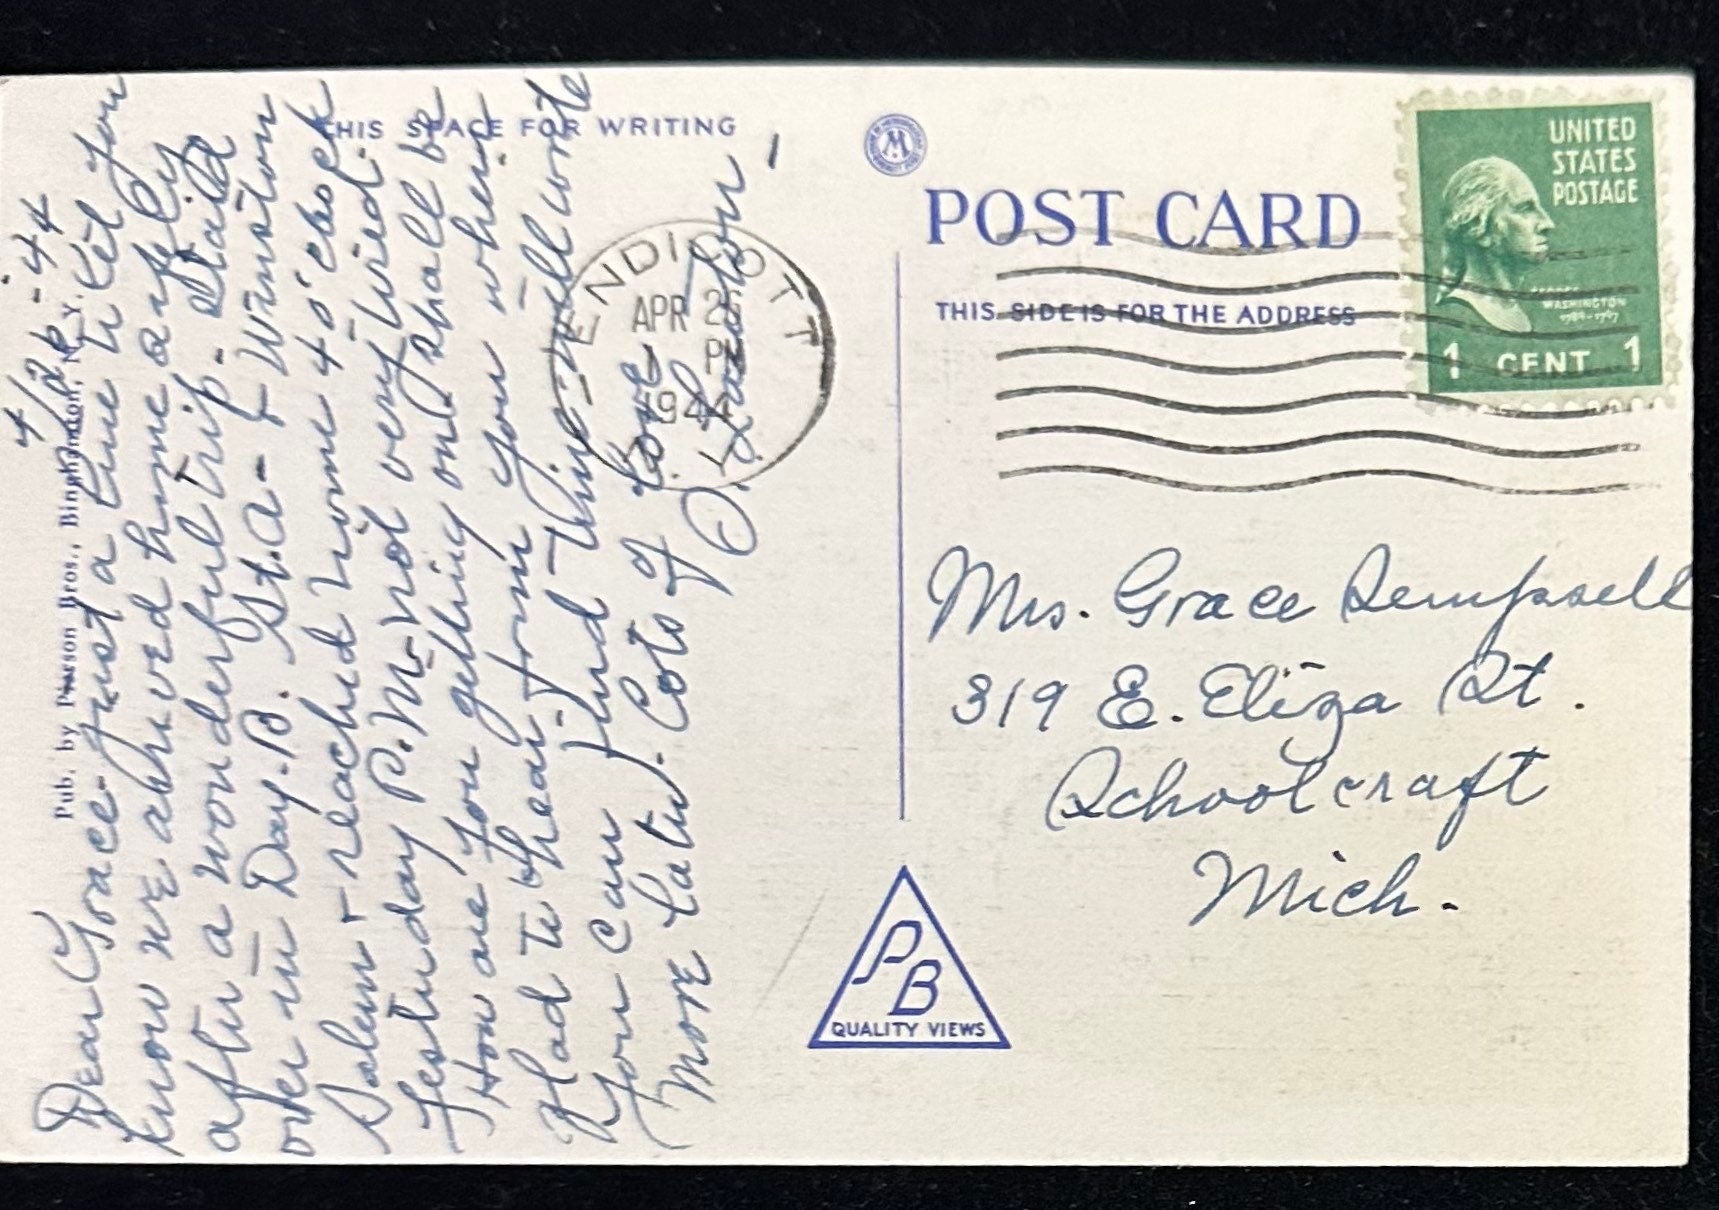 4/26-'44
Dear Grace- Just a line to let you
know we arrived home safely
after a wonderful trip. Staid
over in Day. B. St. A- + Winston
Salem + reached home 4 o'clock
Yesterday P.M- not very tired.
How are you getting on? Shall be
glad to hear from you when
you can find time- Will write
more later. Lots of love
O.
THIS SPACE FOR WRITING
Pub. by Pierson Bros., Binghamton, N. Y.
ENDICOTT
APR 26
PM
1944
N.Y.
M
POST CARD
THIS SIDE IS FOR THE ADDRESS
UNITED
STATES
POSTAGE
GEORGE
WASHINGTON
1789-1797
1 CENT 1
Mrs. Grace Dempsell
319 E. Eliza St.
Schoolcraft
Mich.
PB
QUALITY VIEWS